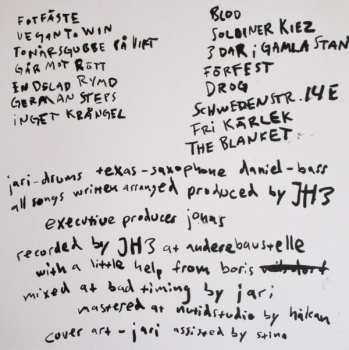 FOTFÄSTE
VEGAN TO WIN
TONÅRSGUBBE PÅ VIFT
GÅR MOT RÖTT
EN DELAD RYMD
GERMAN STEPS
INGET KRÅNGEL
BLOD
SOLDINER KIEZ
3 DAR i GAMLA STAN
FÖRFEST
DROG
SCHWEDENSTR. 14E
FRi KÄRLEK
THE BLANKET
jari-drums texas-saxophone daniel-bass
all songs written arranged produced by JH3
executive producer jonas
recorded by JH3 at andere baustelle
with a little help from boris
mixed at bad timing by jari
mastered at nutidstudio by håkan
cover art - jari assisted by stina